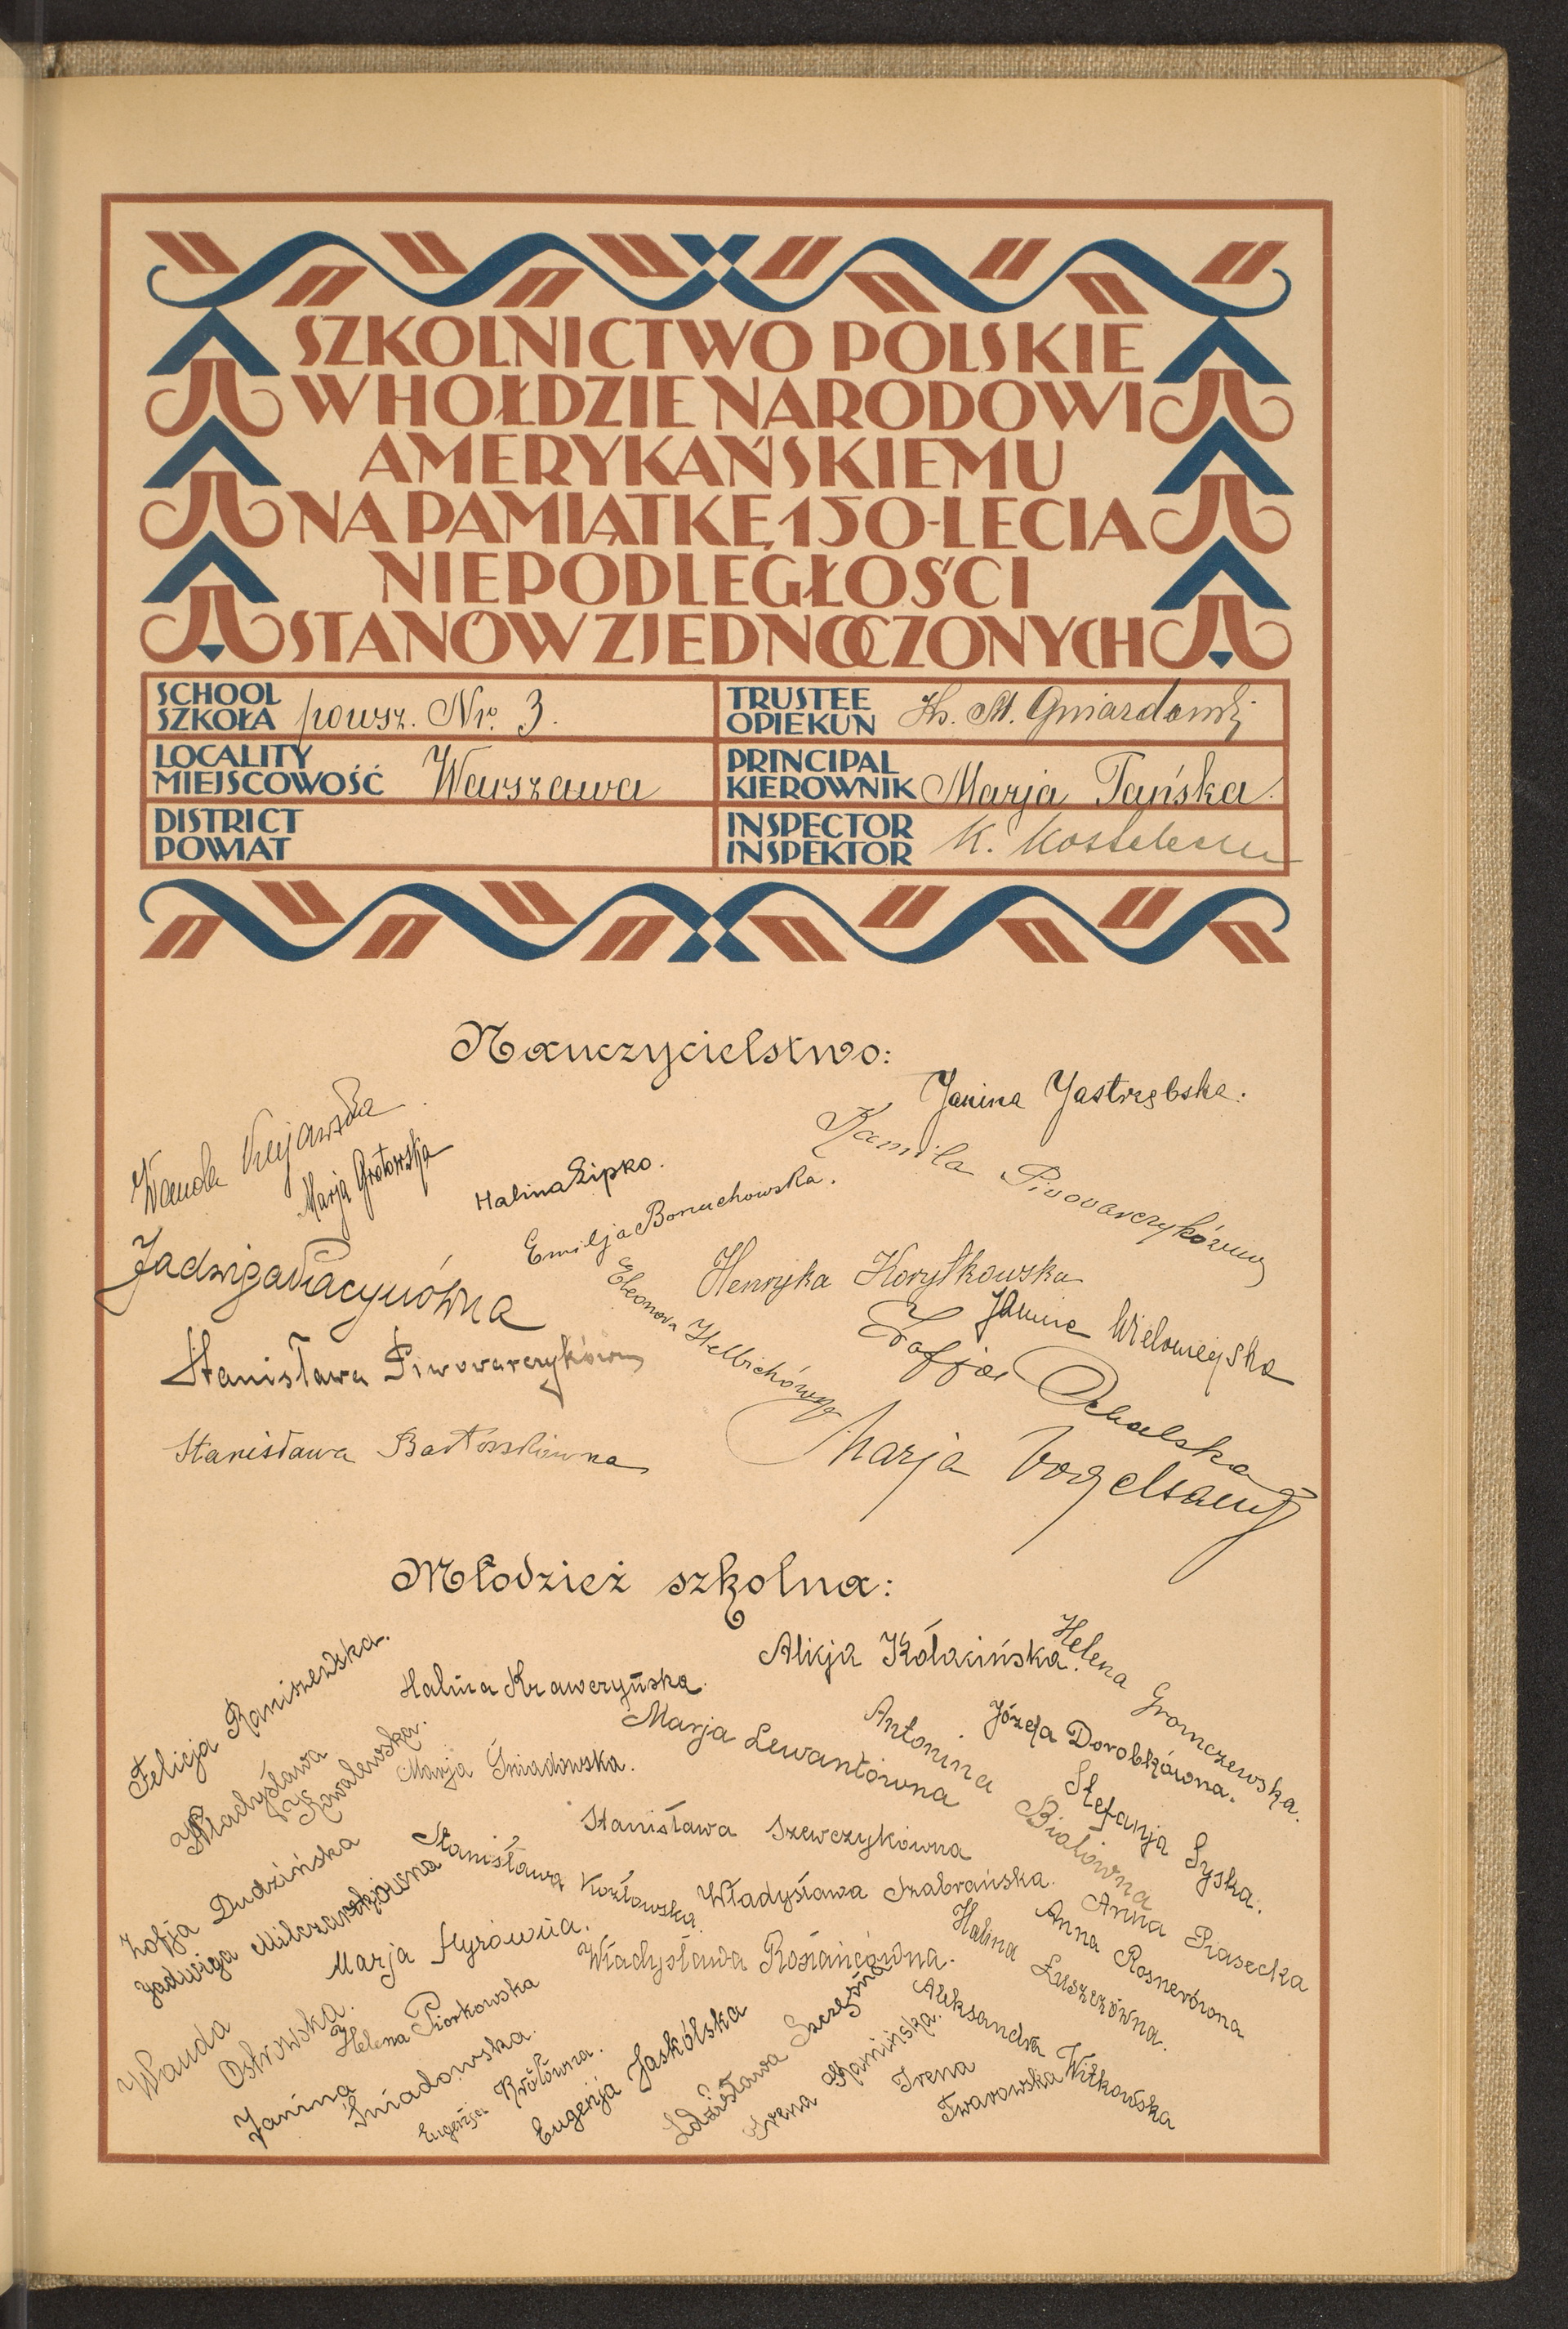 SZKOLNICTWO POLSKIE
W HOŁDZIE NARODOWI
AMERYKAŃSKIEMU
NA PAMIĄTKĘ 150-LECIA
NIEPODLEGŁOŚCI
STANÓW ZJEDNOCZONYCH
SCHOOL
SZKOŁA powsz. Nr. 3.
TRUSTEE
OPIEKUN Ks. M. Gniazdowski
LOCALITY
MIEJSCOWOŚĆ Warszawa
PRINCIPAL
KIEROWNIK Marja Tańska.
DISTRICT
POWIAT
INSPECTOR
INSPEKTOR K.
Nauczycielstwo:
Janina Jastrzębska.
Wanda Kujawska.
Marja Grotowska
Kamila Piwowarczykówna
Halina Lipko.
Emilja Boruchowska.
Jadwiga
Henryka Korytkowska
Eleonora Helbichówna
Janina Wielowieyska
Stanisława Piwowarczykówna
Zofja
Stanisława Bartoszkówna
Marja Vogelsang
Młodzież szkolna:
Felicja Raniszewska.
Halina Krawczyńska.
Alicja Kołacińska.
Helena Gromczewska.
Władysława
Kowalewska.
Marja Śniadowska.
Marja Lewantówna
Antonina Białówna
Józefa Dorobkówna.
Stefanja Syska.
Zofja Dudzińska
Jadwiga Milczarkówna
Stanisława Kozłowska.
Stanisława Szewczykówna
Władysława Szabrańska.
Anna Piasecka
Anna Rosnerówna
Halina Łuszczówna.
Marja Hyrówna.
Władysława Rosłańcówna.
Wanda
Ostrowska.
Helena Piorkowska
Janina
Śniadowska.
Eugenja Królówna.
Eugenja Jaskólska
Zdzisława Szczęsna
Irena Kamińska.
Aleksandra Witkowska
Irena
Twarowska